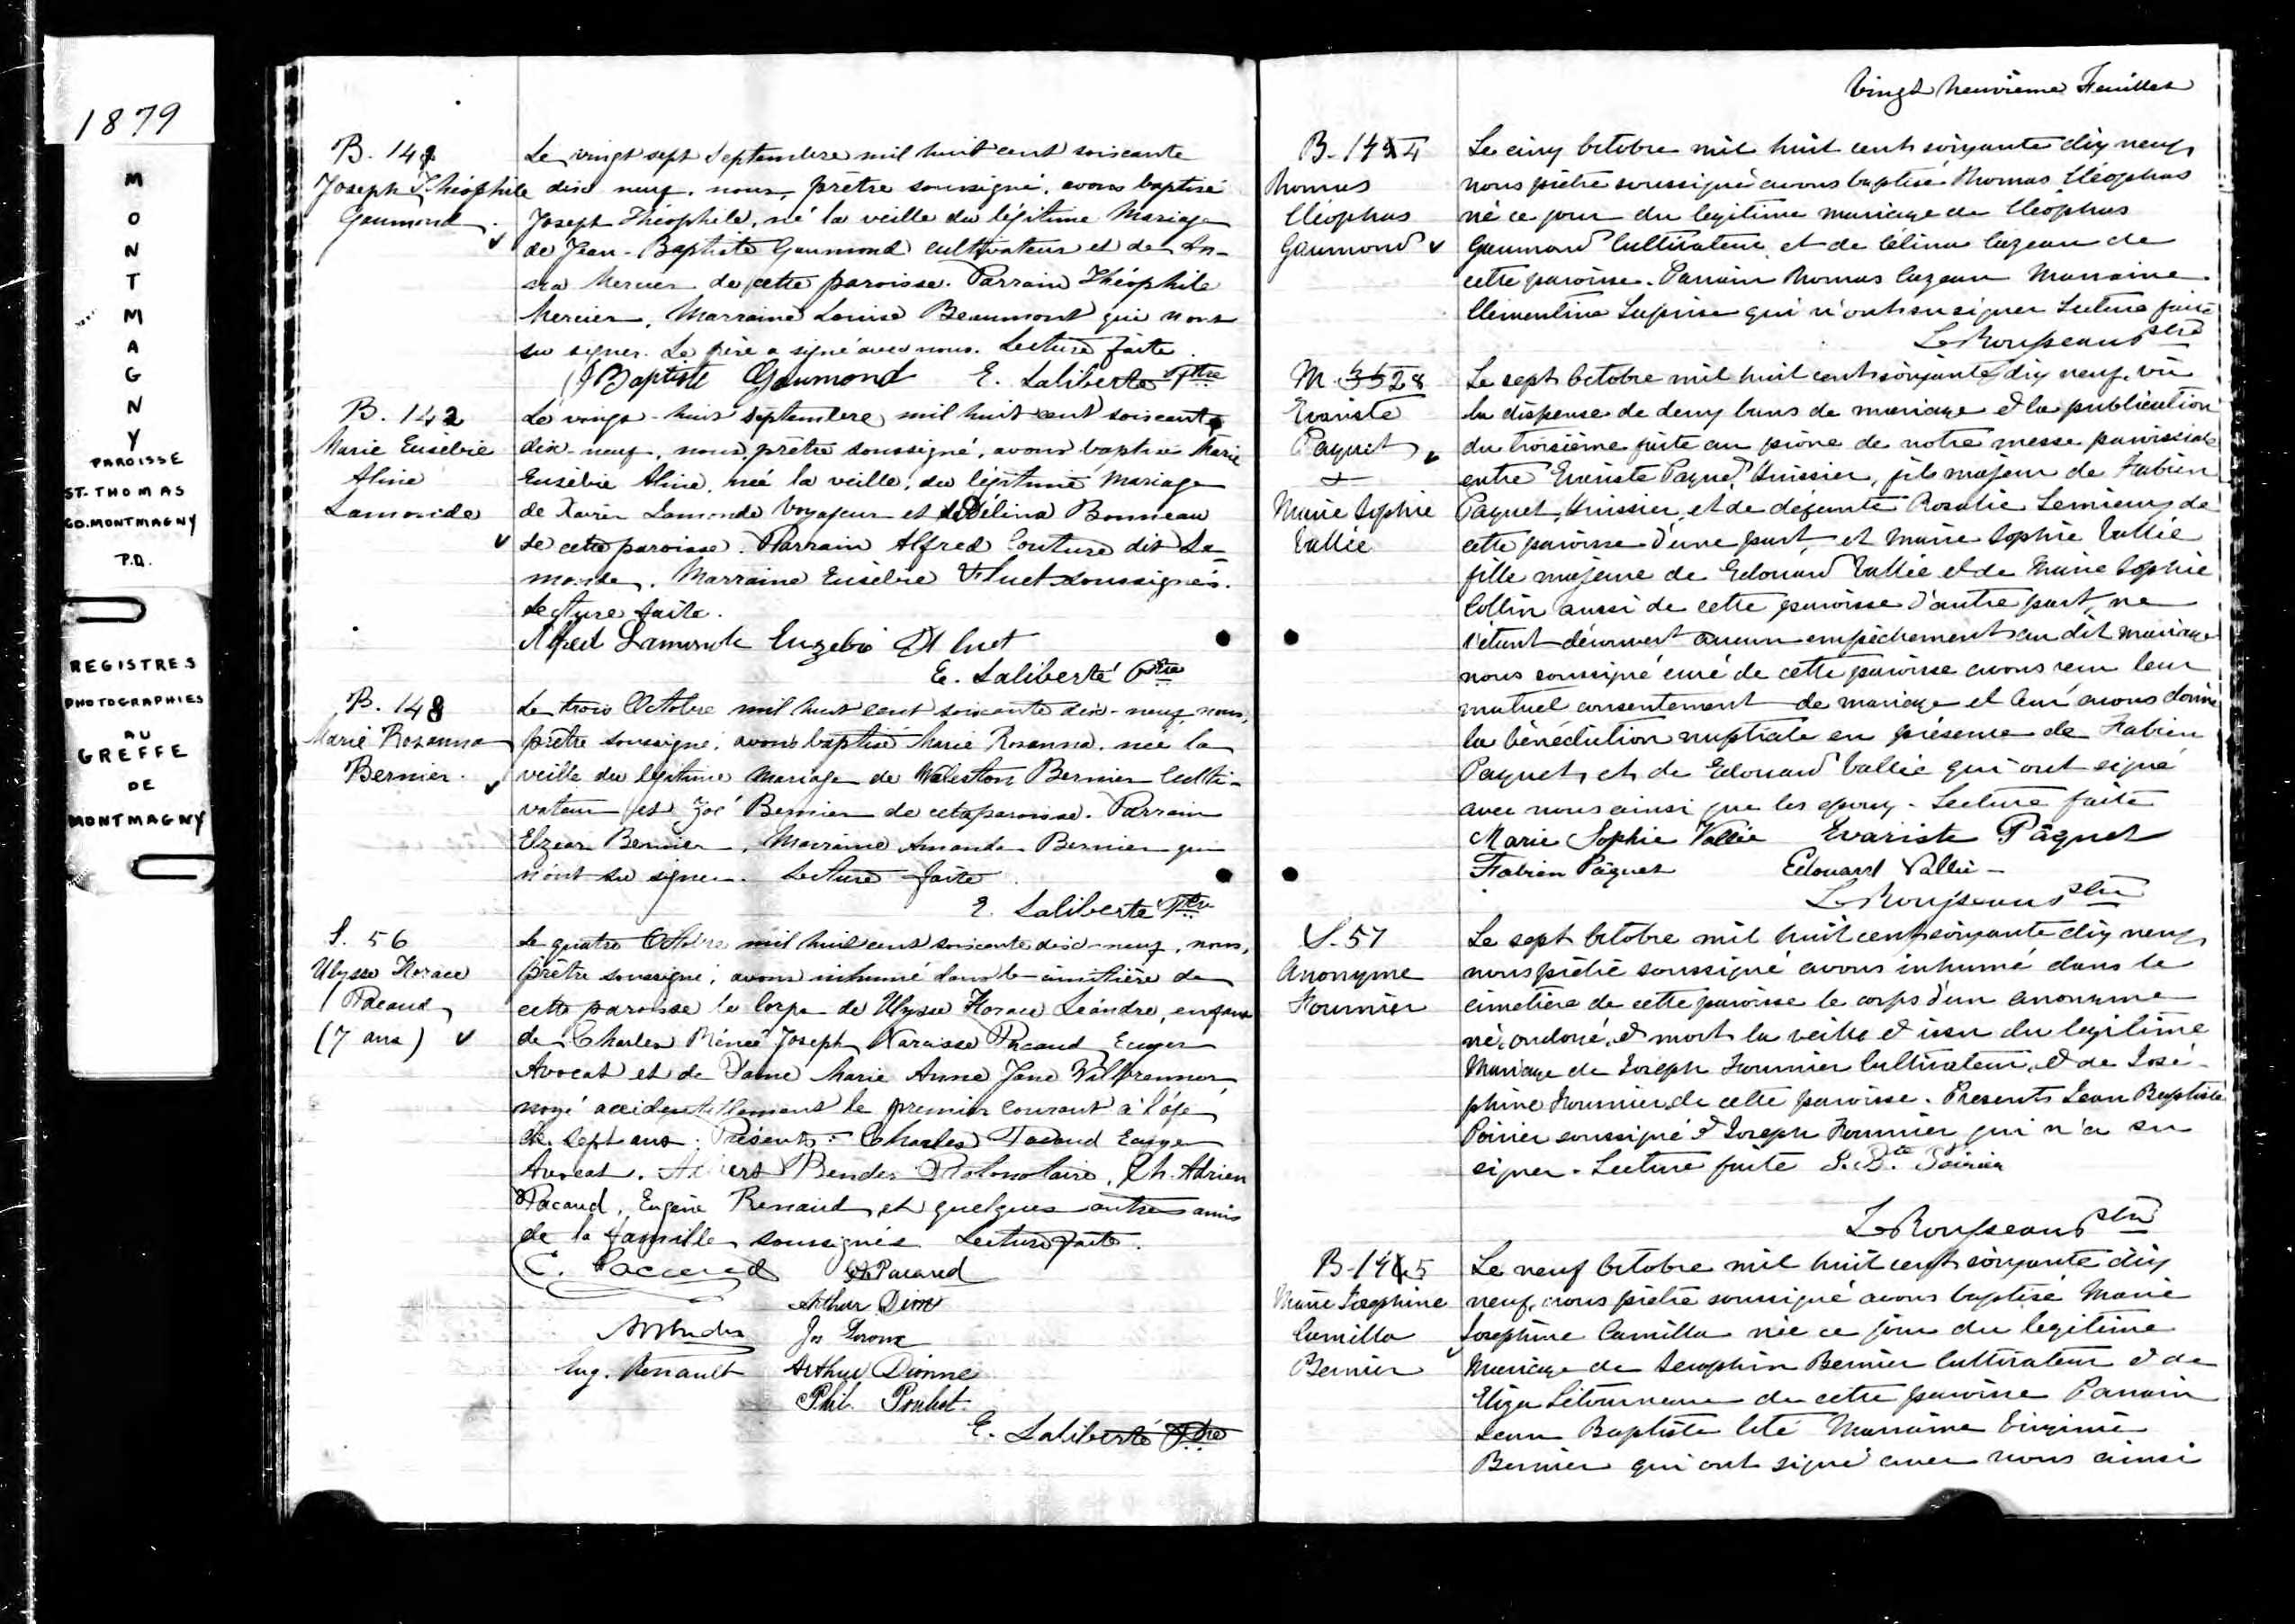 1879
MONTMAGNY
PAROISSE
ST. THOMAS
CO. MONTMAGNY
P.Q.
REGISTRES
PHOTOGRAPHIES
AU
GREFFE
DE
MONTMAGNY
B. 141
Joseph Théophile
Gaumond
Le vingt sept Septembre mil huit cent soixante
dix neuf, nous, prêtre soussigné, avons baptisé
Joseph Théophile, né la veille du légitime Mariage
de Jean-Baptiste Gaumond cultivateur et de
Mercier de cette paroisse. Parrain Théophile
Mercier, Marraine Louise Beaumont qui n'ont
su signer. Le père a signé avec nous. Lecture faite.
J Baptiste Gaumond E. Laliberté Ptre
B. 142
Marie Eusébie
Aline
Lamonde
Le vingt-huit septembre mil huit cent soixante
dix-neuf, nous, prêtre soussigné, avons baptisé Marie
Eusébie Aline, née la veille, du légitime Mariage
de Xavier Lamonde Voyageur et de Délina Bonneau
de cette paroisse. Parrain Alfred Couture dit La-
monde. Marraine Eusébie Fluet soussignés.
Lecture faite.
Alfred Lamonde Euzebie Fluet
E. Laliberté Ptre
B. 143
Marie Rosanna
Bernier
Le trois Octobre mil huit cent soixante dix-neuf, nous,
prêtre soussigné, avons baptisé Marie Rosanna, née la
veille du légitime Mariage de Bernier Culti-
vateur et Zoé Bernier de cette paroisse. Parrain
Elzear Bernier, Marraine Amanda Bernier qui
n'ont su signer. Lecture faite.
E. Laliberté Ptre
S. 56
Ulysse Horace
Pacaud
(7 ans)
Le quatre Octobre mil huit cent soixante dix-neuf, nous,
prêtre soussigné, avons inhumé dans le cimitière de
cette paroisse le Corps de Ulysse Horace Léandre, enfant
de Charles Rénée Joseph Narcisse Pacaud Ecuyer
Avocat et de Dame Marie Anne Jane Willbrenner,
noyé accidentellement le premier courant à l'âge
de sept ans. Présents: Charles Pacaud Ecuyer
Avocat, Albert Bender Protonotaire, Ch. Adrien
Pacaud, Eugène Renaud et quelques autres amis
de la famille soussignés Lecture faite.
C. Pacaud Pacaud
Arthur Dion
A Bender Jos
Eug. Renault Arthur Dionne
Phil. Pouliot
E. Laliberté Ptre
Vingt neuvième Feuillet
B. 144
Thomas
Cléophas
Gaumond
Le cinq Octobre mil huit cent soixante dix neuf
nous prêtre soussigné avons baptisé Thomas Cléophas
né ce jour du légitime mariage de Cléophas
Gaumond Cultivateur et de Célina Cazeau de
cette paroisse. Parrain Thomas Cazeau Marraine
Clémentine Laprise qui n'ont su signer Lecture faite
L. Rousseau ptre
M. 28
Evariste
Paquet
&
Marie Sophie
Vallée
Le sept Octobre mil huit cent soixante dix neuf, vu
la dispense de deux bans de mariage & la publication
du troisième faite au prône de notre messe paroissiale
entre Evariste Paquet, Huissier, fils majeur de Fabien
Paquet, Huissier, et de défunte Rosalie Lemieux de
cette paroisse d'une part, et Marie Sophie Vallée
fille majeure de Edouard Vallée et de Marie Sophie
Collin aussi de cette paroisse d'autre part, ne
s'étant découvert aucun empêchement au dit mariage
nous soussigné curé de cette paroisse avons reçu leur
mutuel consentement de mariage et leur avons donné
la bénédiction nuptiale en présence de Fabien
Paquet, et de Edouard Vallée qui ont signé
avec nous ainsi que les époux. Lecture faite
Marie Sophie Vallée Evariste Pâquet
Fabien Pâquet Edouard Vallée
L. Rousseau ptre
S. 57
Anonyme
Fournier
Le sept Octobre mil huit cent soixante dix neuf
nous prêtre soussigné avons inhumé dans le
cimetière de cette paroisse le corps d'un anonyme
né, ondoyé, & mort la veille & issu du légitime
Mariage de Joseph Fournier Cultivateur & de José-
phine Fournier de cette paroisse. Présents Jean Baptiste
Poirier soussigné & Joseph Fournier qui n'a su
signer. Lecture faite J. Bte Poirier
L. Rousseau ptre
B-145
Marie Josephine
Camilla
Bernier
Le neuf Octobre mil huit cent soixante dix
neuf, nous prêtre soussigné avons baptisé Marie
Josephine Camilla née ce jour du légitime
Mariage de Séraphin Bernier Cultivateur & de
Eliza Létourneau de cette paroisse Parrain
Jean Baptiste Côté Marraine Virginie
Bernier qui ont signé avec nous ainsi